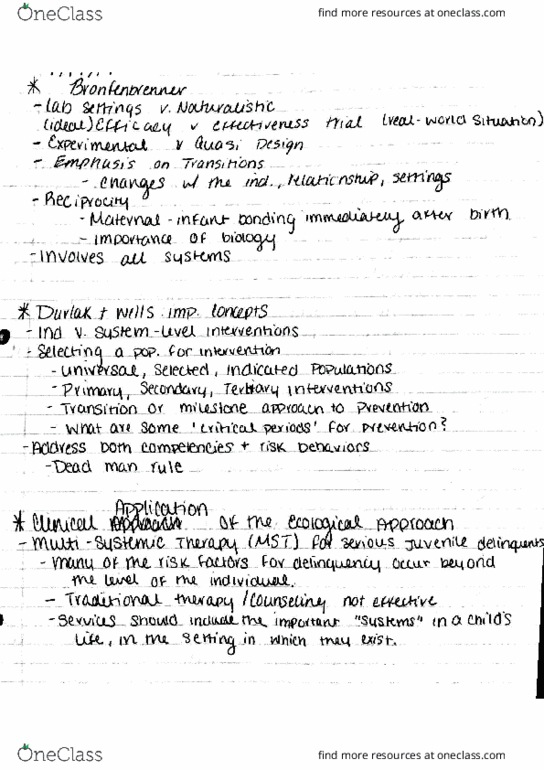 OneClass
find more resources at oneclass.com
* Bronfenbrenner
- Lab settings v. Naturalistic
(ideal) Efficacy v effectiveness trial (real-world situation)
- Experimental v Quasi Design
- Emphasis on Transitions
- changes w/ the ind., relationship, settings
- Reciprocity
- Maternal-infant bonding immediately after birth
- importance of biology
- Involves all systems
* Durlak + Wells imp. concepts
- Ind v. System-level interventions
- Selecting a pop. for intervention
- universal, selected, indicated populations
- Primary, Secondary, Tertiary interventions
- Transition or milestone approach to prevention
- What are some 'critical periods' for prevention?
- Address both competencies + risk behaviors
- Dead man rule
Application
* Clinical Approach of the ecological approach
- Multi-Systemic Therapy (MST) for serious juvenile delinquents
- many of the risk factors for delinquency occur beyond
the level of the individual.
- Traditional therapy/counseling not effective
- Services should include the important "systems" in a child's
life, in the setting in which they exist.
OneClass
find more resources at oneclass.com